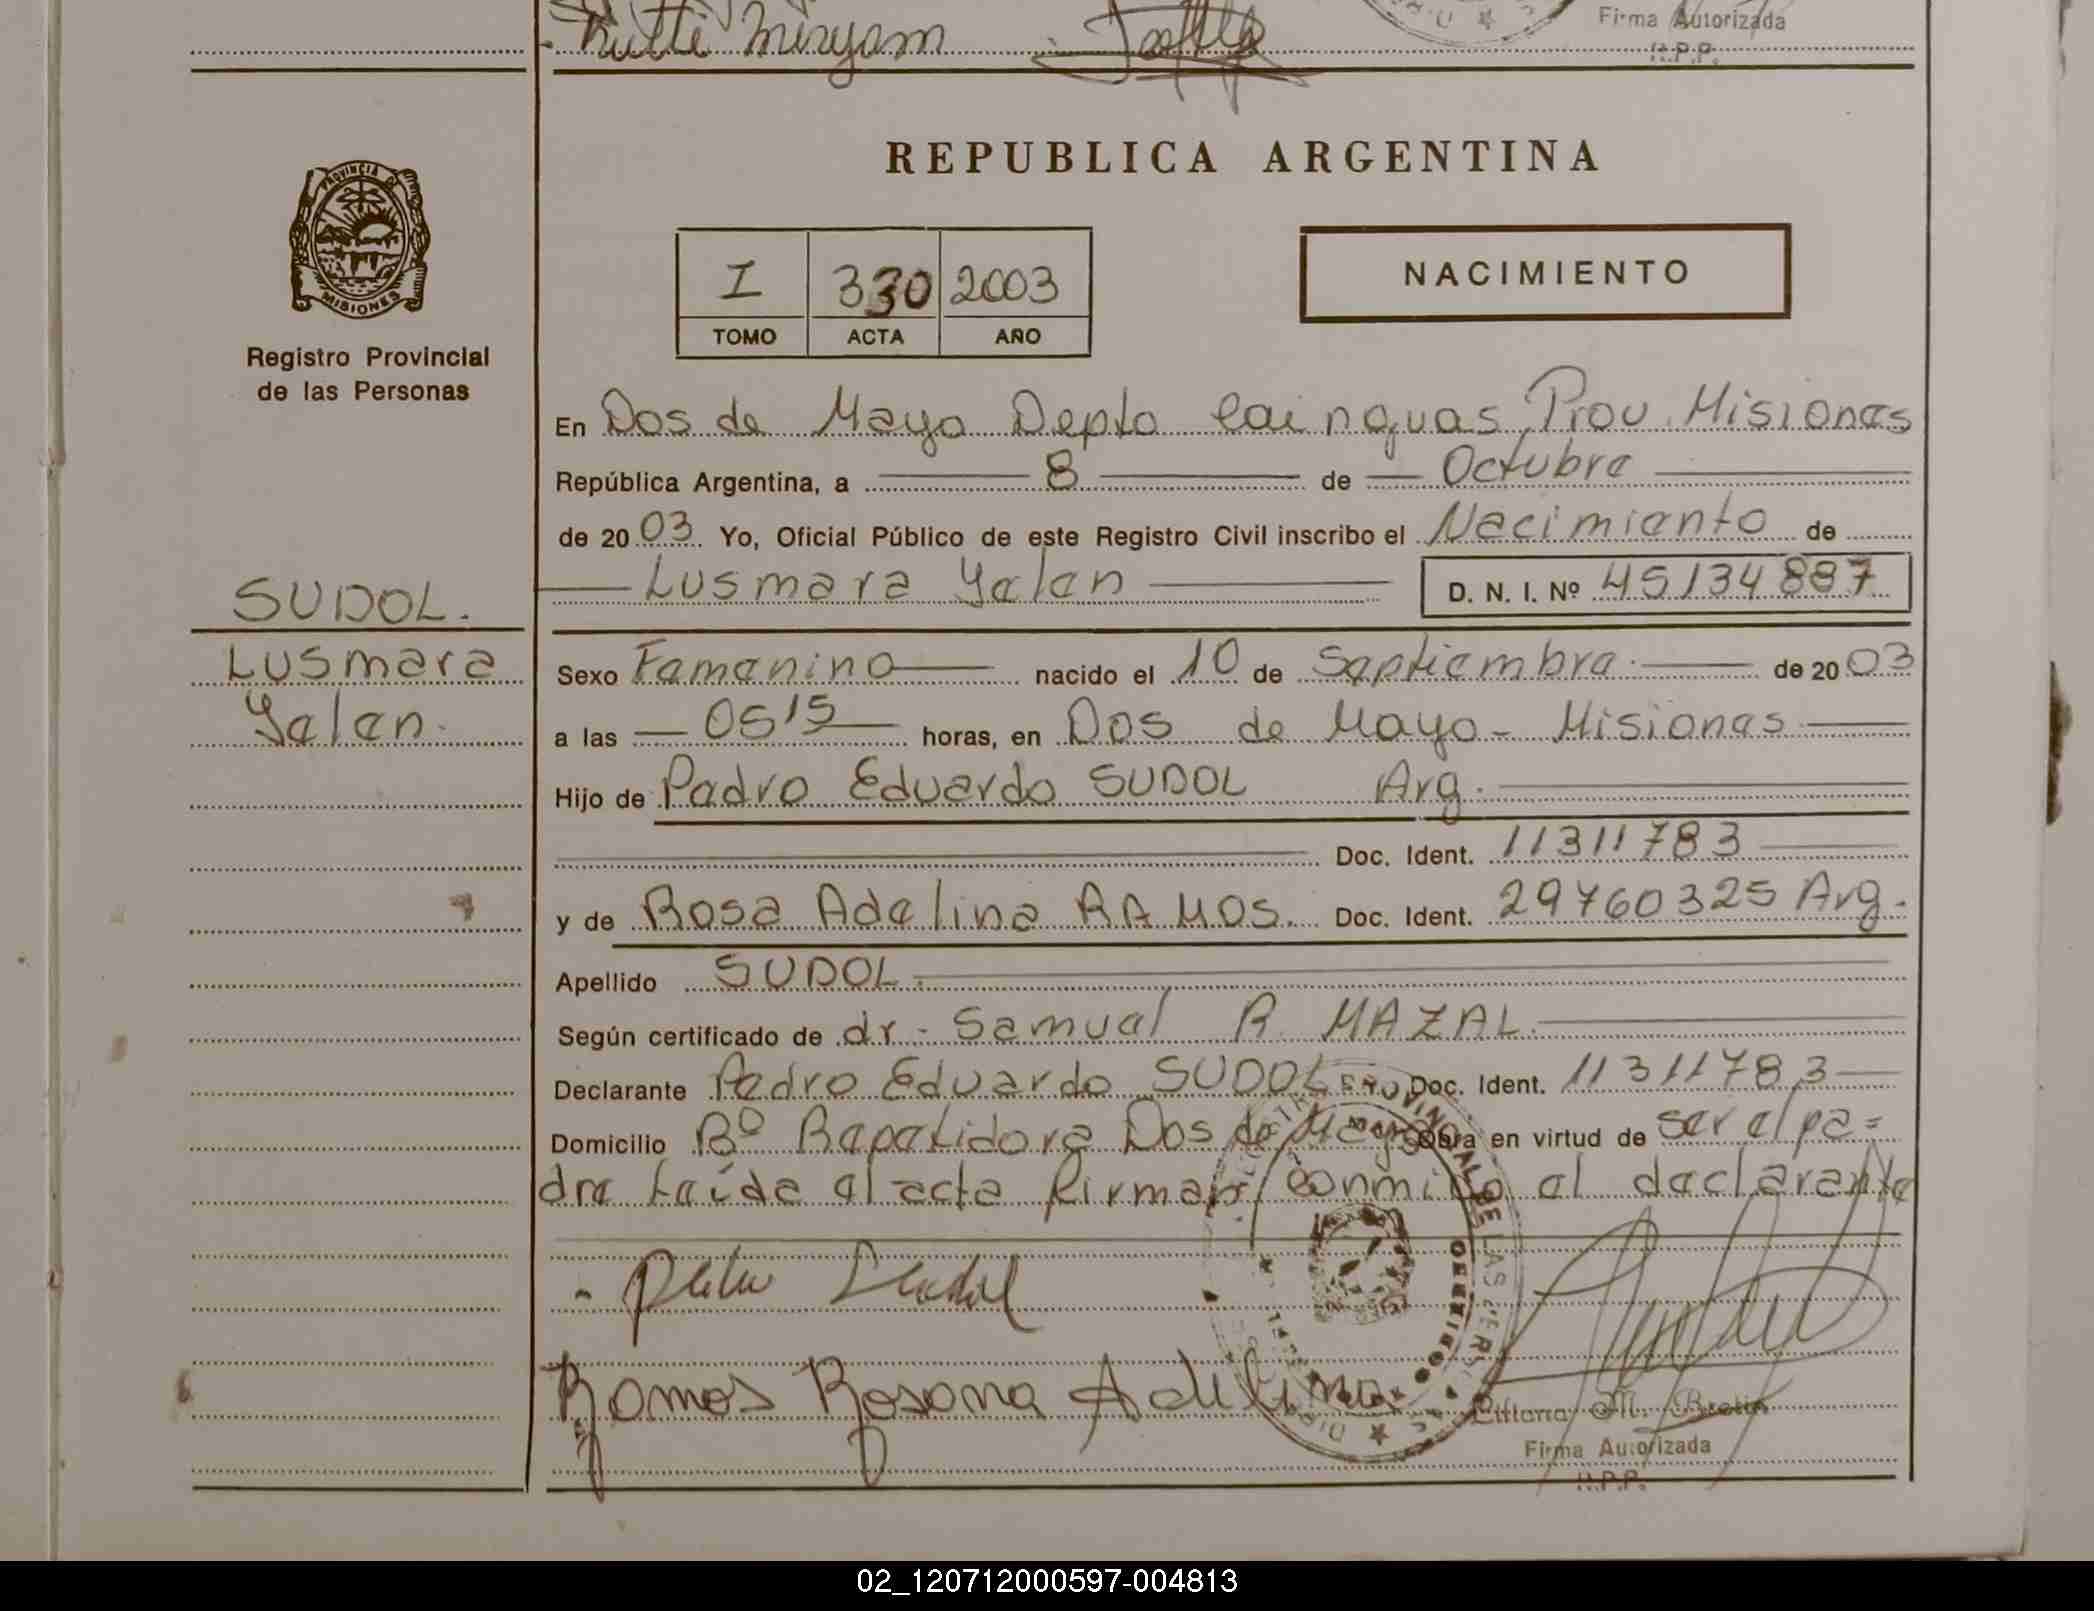 Rutti Miryam
Firma Autorizada
R.P.P.
PROVINCIA DE
MISIONES
Registro Provincial
de las Personas
REPUBLICA ARGENTINA
I 330 2003
TOMO ACTA AÑO
NACIMIENTO
En Dos de Mayo Depto Cainguas Prov. Misiones
República Argentina, a 8 de Octubre
de 2003 Yo, Oficial Público de este Registro Civil inscribo el Nacimiento de
Lusmara Yelen D. N. I. Nº 45134887
SUDOL.
Lusmara
Yelen.
Sexo Femenino nacido el 10 de Septiembre de 2003
a las 0515 horas, en Dos de Mayo - Misiones
Hijo de Pedro Eduardo SUDOL Arg.
Doc. Ident. 11311783
y de Rosa Adelina RAMOS. Doc. Ident. 29760325 Arg.
Apellido SUDOL.
Según certificado de dr. Samuel R. MAZAL.
Declarante Pedro Eduardo SUDOL Doc. Ident. 11311783
Domicilio Bº Repetidora Dos de Mayo Obra en virtud de ser el pa=
dre Leída el acta firman conmigo el declarante
Ramos Rosana Adelina
Firma Autorizada
R.P.P.
02_120712000597-004813